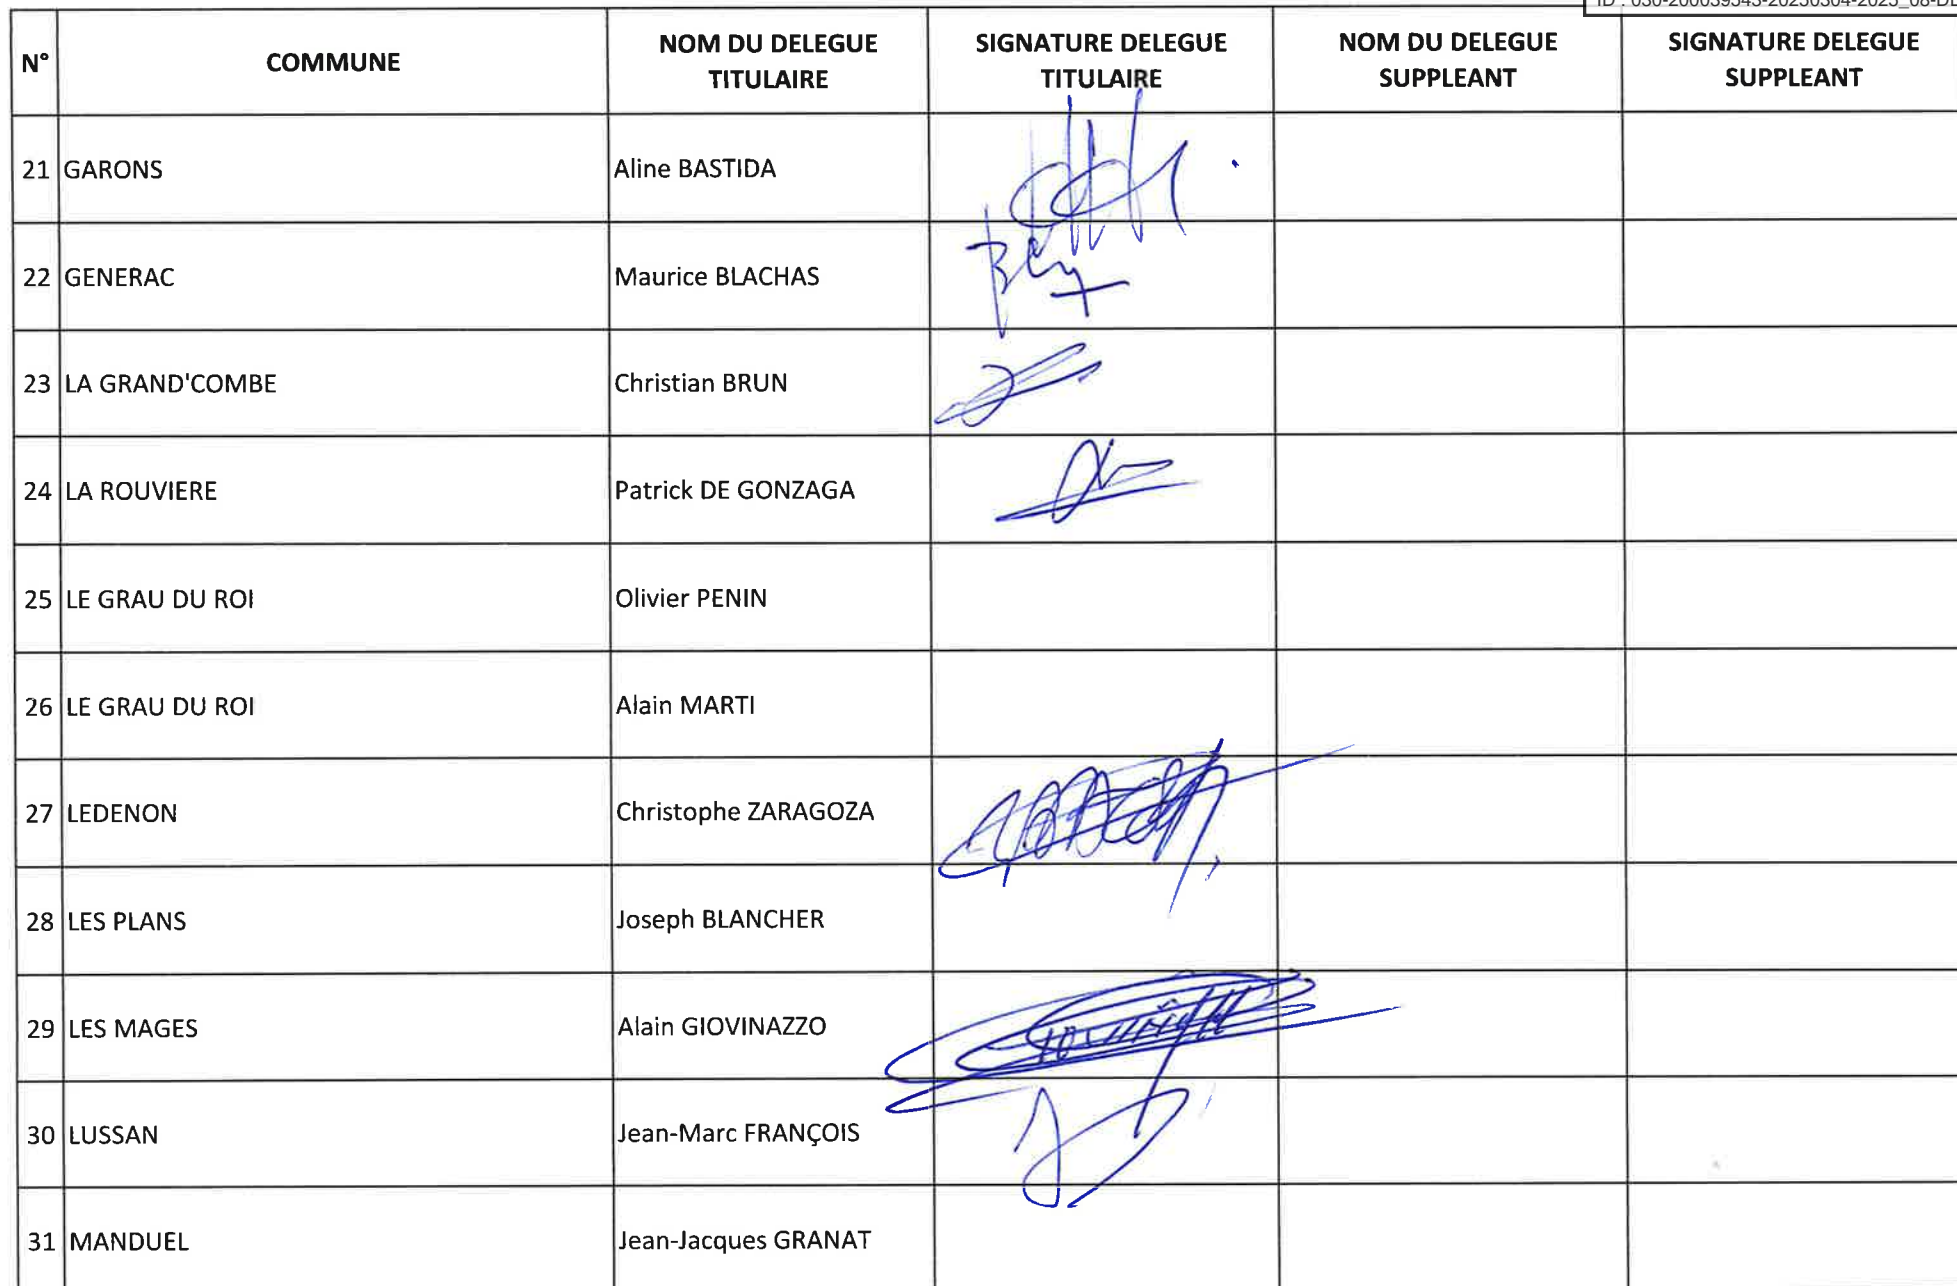 ID : 030-200039543-20250304-2025_08-DE
N° COMMUNE NOM DU DELEGUE TITULAIRE SIGNATURE DELEGUE TITULAIRE NOM DU DELEGUE SUPPLEANT SIGNATURE DELEGUE SUPPLEANT
21 GARONS Aline BASTIDA
22 GENERAC Maurice BLACHAS
23 LA GRAND'COMBE Christian BRUN
24 LA ROUVIERE Patrick DE GONZAGA
25 LE GRAU DU ROI Olivier PENIN
26 LE GRAU DU ROI Alain MARTI
27 LEDENON Christophe ZARAGOZA
28 LES PLANS Joseph BLANCHER
29 LES MAGES Alain GIOVINAZZO
30 LUSSAN Jean-Marc FRANÇOIS
31 MANDUEL Jean-Jacques GRANAT